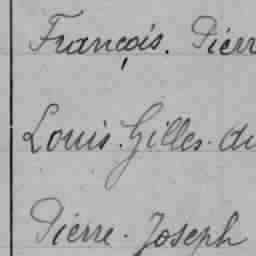 François. Pierr
Louis. Gilles. du
Pierre. Joseph